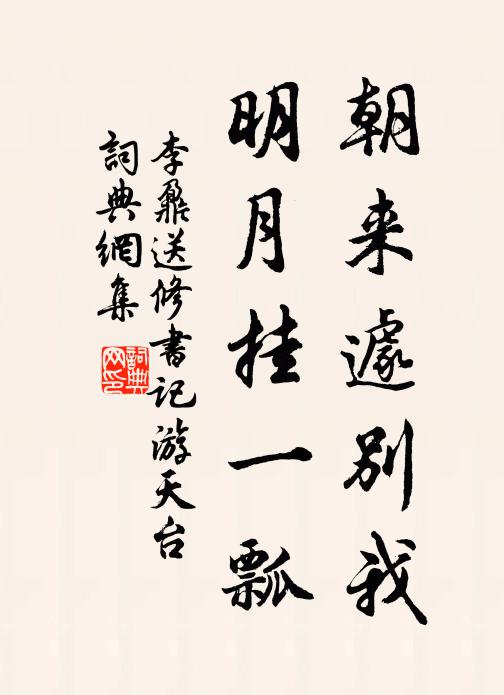 朝来遽别我
明月挂一瓢
李鼐送修書記游天台
詞典網集
詞典网印